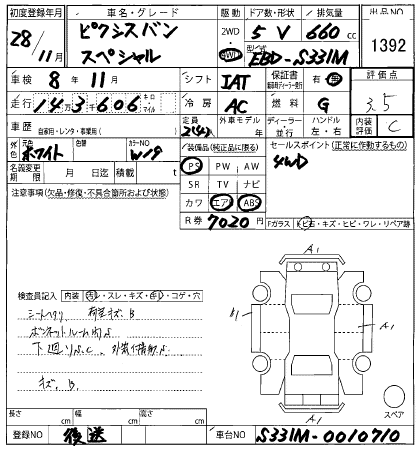 初度登録年月 車名・グレード 駆動 ドア数・形状 排気量 出品NO
28/11月 ピクシスバン スペシャル 2WD 4WD 5 V 660 cc 1392
型式 EBD-S331M
車検 8年 11月 シフト IAT 保証書 有 無 評価点
走行 143,606 キロ・マイル 冷房 AC 燃料 G 3.5
車歴 自家用・レンタ・事業用( ) 定員 2(4)人 外車モデル 年 ディーラー・並行 ハンドル 左・右 内装評価 C
外色 元色 ホワイト 色替 カラーNO W19 装備品(純正品に限る) セールスポイント(正常に作動するもの)
名義変更期限 月 日迄 積載 t PS PW AW 4WD
注意事項(欠品・修復・不具合箇所および状態) SR TV ナビ
カワ エアB ABS
R券 7020円 Fガラス トビ石・キズ・ヒビ・ワレ・リペア跡
A1
検査員記入 内装 汚レ・スレ・キズ・コゲ・穴
シートヘタリ 荷室キズ、B
ボンネットルーム内S
A1
下廻りS.C.
キズ、B、
A1
スペア
長さ cm 幅 cm 高さ cm
登録NO 後送 車台NO S331M-0010710